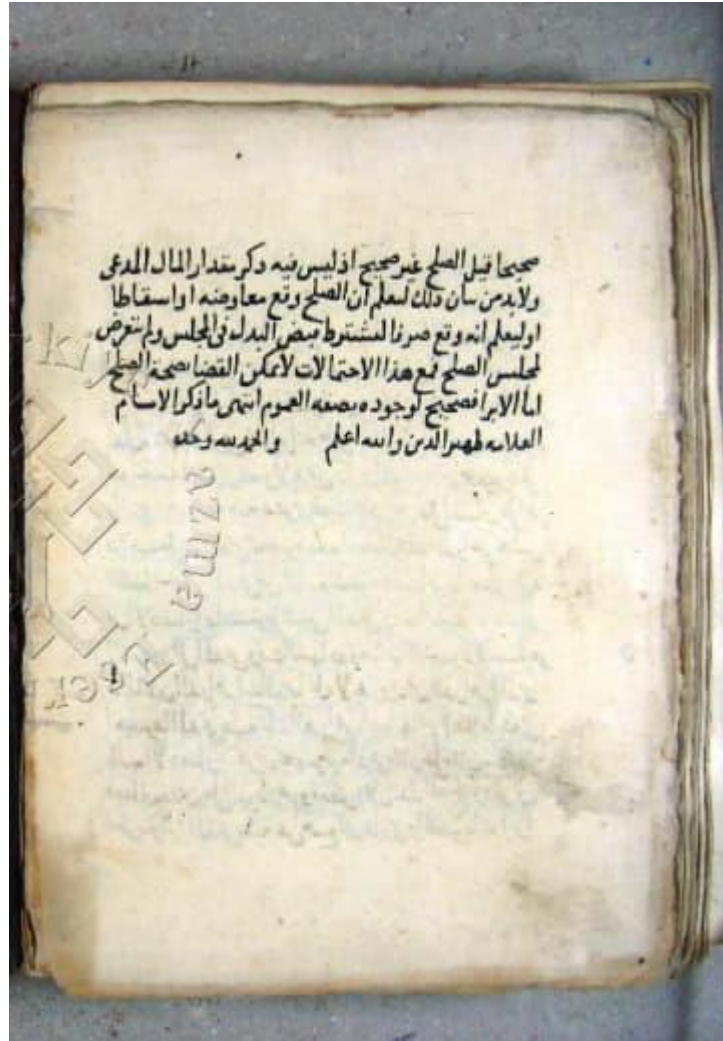 صحيحا قيل الصلح غير صحيح اذ ليس فيه ذكر مقدار المال المدعى
ولابد من بيان ذلك ليعلم ان الصلح وقع معاوضه او اسقاطا
او ليعلم انه وقع صرفا لتشترط قبض البدل فى المجلس ولم يتعرض
لمجلس الصلح فمع هذا الاحتمالات لا يمكن القضا بصحة الصلح
اما الابرا فصحيح لوجوده بصفه العموم انتهى ما ذكر الامام
العلامه ظهير الدين والله اعلم والحمد لله وحده
azma